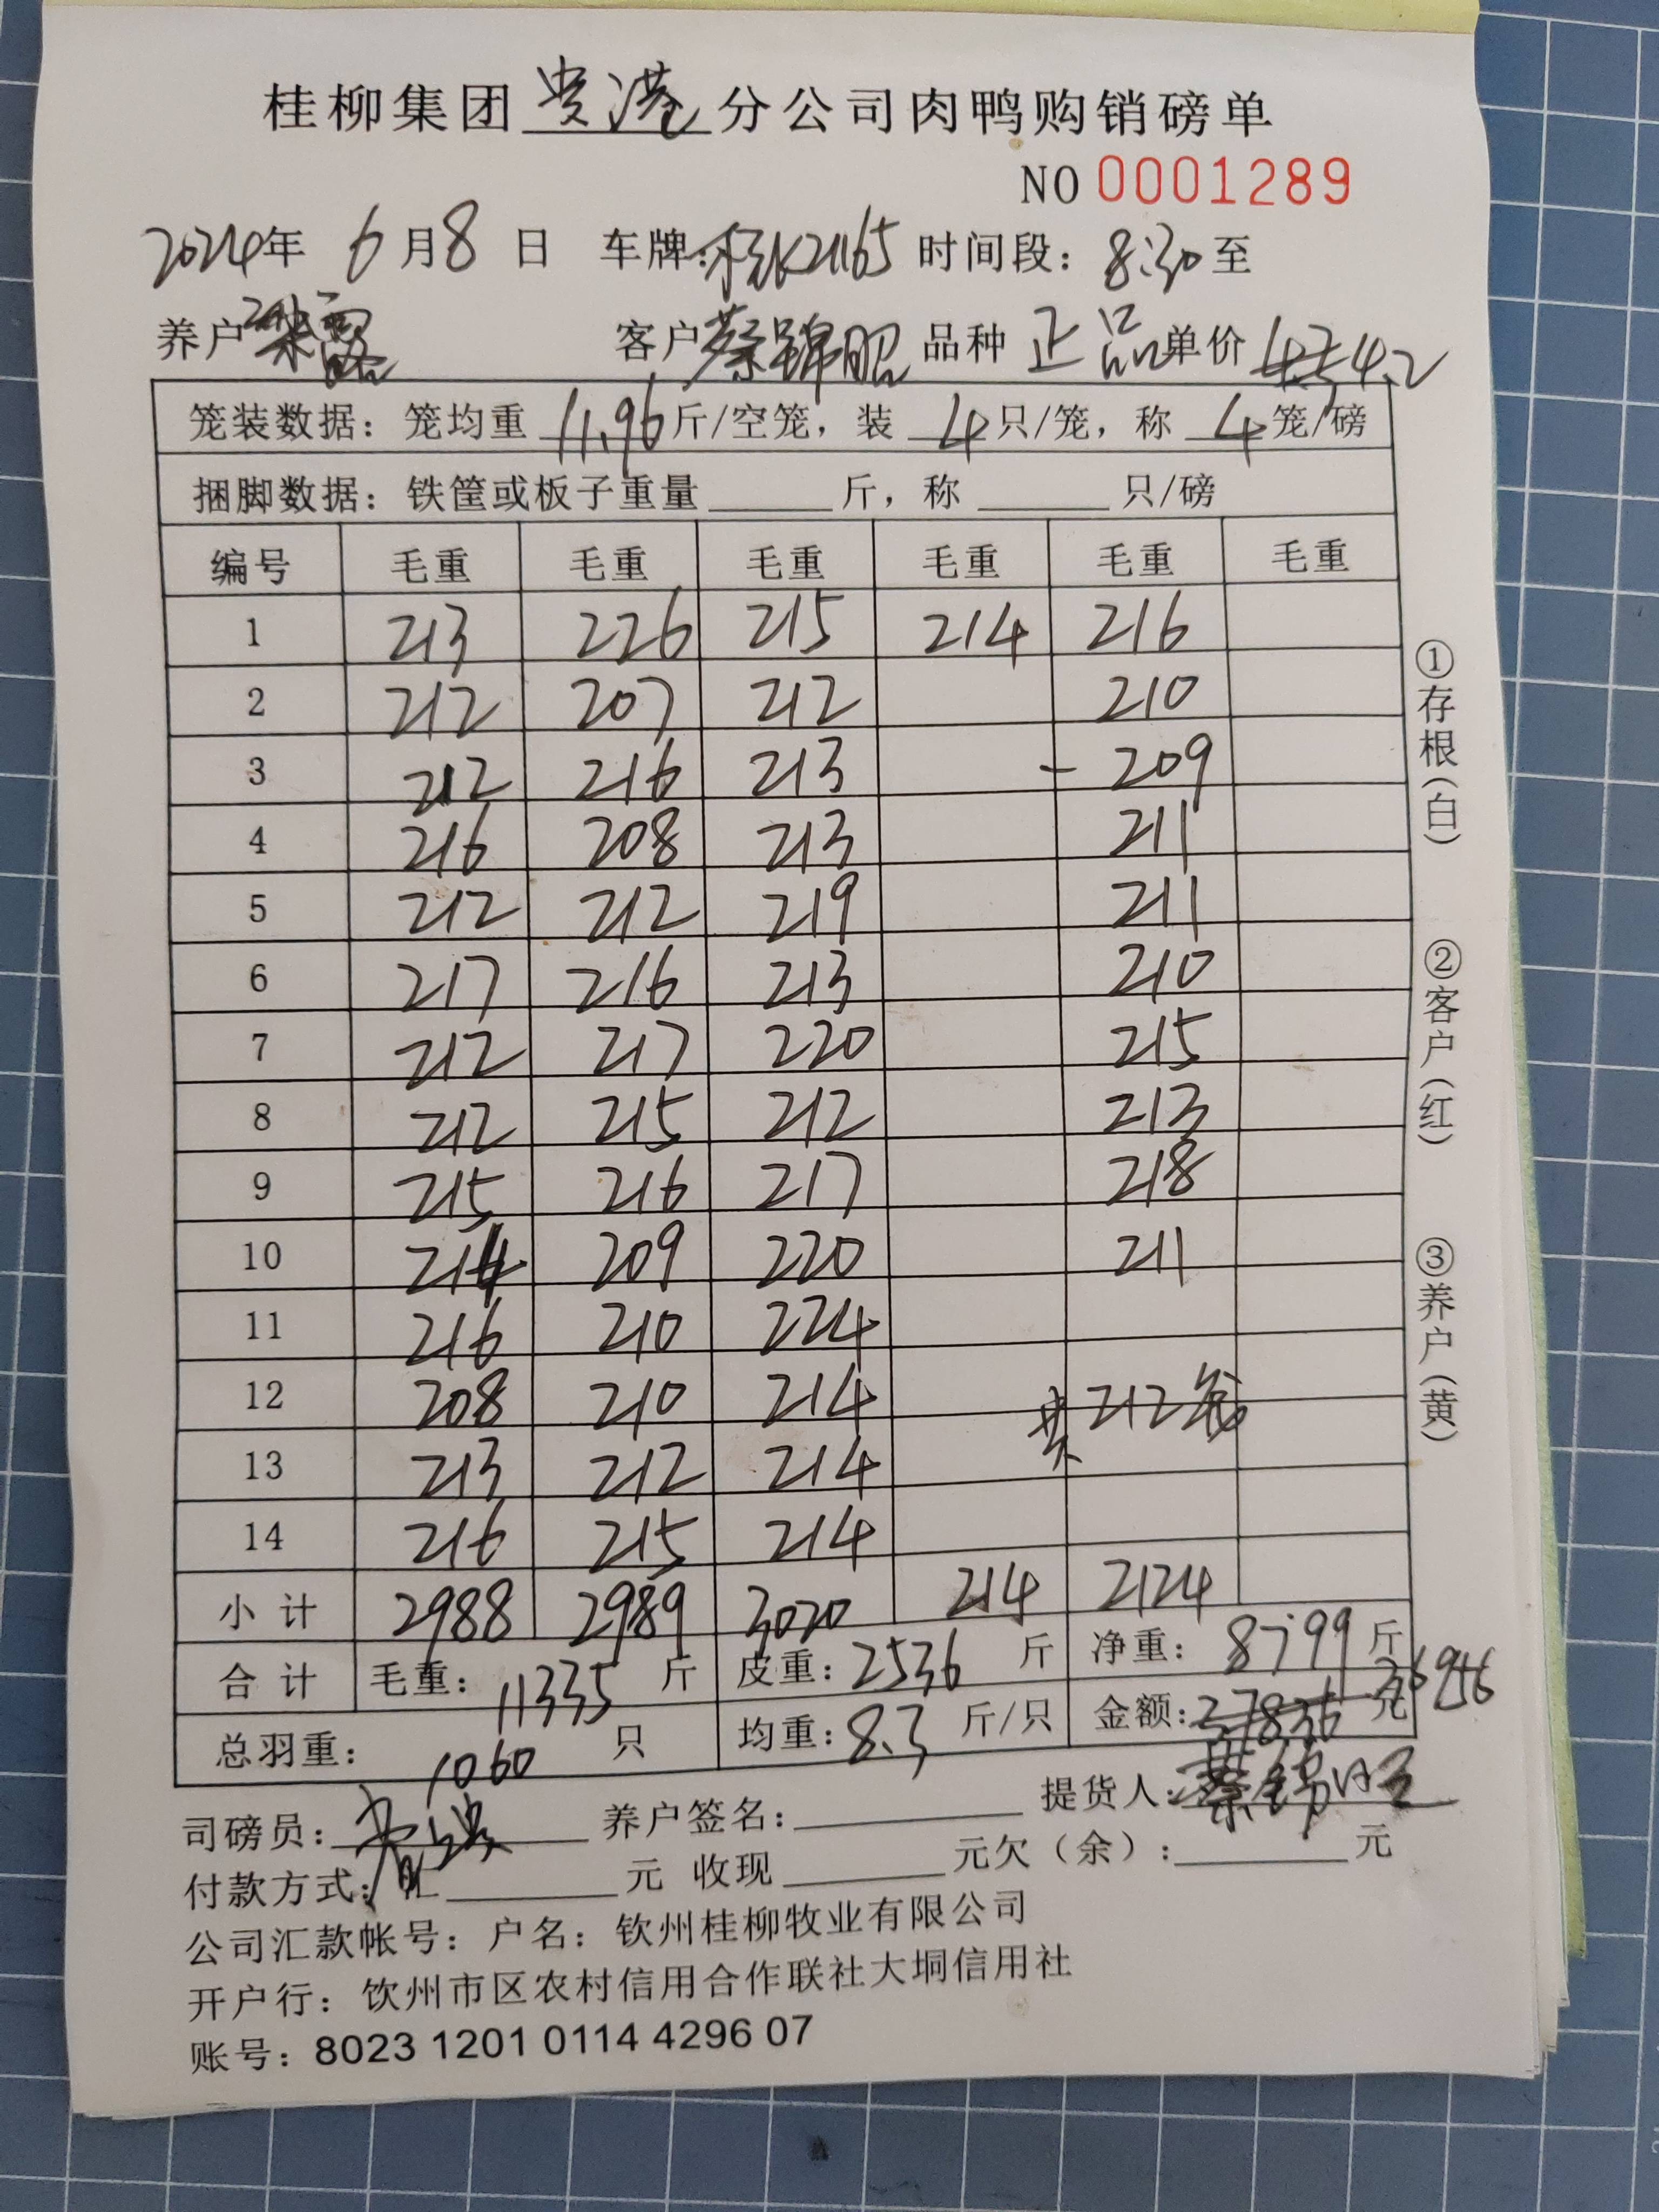 桂柳集团贵港分公司肉鸭购销磅单
NO 0001289
2024年 6月8日 车牌: K2165 时间段: 8:30至
养户 梁露 客户 蔡锦昭 品种 正品 单价 4.2
笼装数据: 笼均重 11.96 斤/空笼, 装 4 只/笼, 称 4 笼/磅
捆脚数据: 铁筐或板子重量 斤, 称 只/磅
编号 毛重 毛重 毛重 毛重 毛重 毛重
1 213 226 215 214 216
2 212 207 212 210
3 212 216 213 - 209
4 216 208 213 211
5 212 212 219 211
6 217 216 213 210
7 212 217 220 215
8 212 215 212 213
9 215 216 217 218
10 214 209 220 211
11 216 210 224
12 208 210 214 共212笼
13 213 212 214
14 216 215 214
小计 2988 2989 3020 214 2124
合计 毛重: 11335 斤 皮重: 2536 斤 净重: 8799 斤
总羽重: 1060 只 均重: 8.3 斤/只 金额: 37836 元 36956
司磅员: 养户签名: 提货人: 蔡锦昭
付款方式: 汇 元 收现 元欠(余): 元
公司汇款帐号: 户名: 钦州桂柳牧业有限公司
开户行: 钦州市区农村信用合作联社大垌信用社
账号: 8023 1201 0114 4296 07
①存根(白)
②客户(红)
③养户(黄)